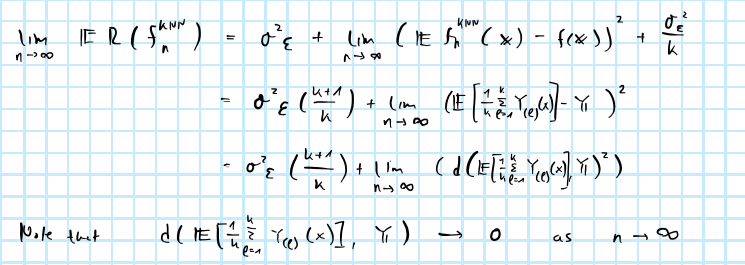 lim_{n→∞} 𝔼 R ( f_n^{KNN} ) = σ²_ε + lim_{n→∞} ( 𝔼 f_n^{KNN} (x) - f(x) )² + σ_ε²/k
= σ²_ε ( (k+1)/k ) + lim_{n→∞} ( 𝔼 [ 1/k Σ_{ℓ=1}^k Y_{(ℓ)}(x) ] - Y )²
= σ²_ε ( (k+1)/k ) + lim_{n→∞} ( d( 𝔼[ 1/k Σ_{ℓ=1}^k Y_{(ℓ)}(x) ], Y )² )
Note that d( 𝔼 [ 1/k Σ_{ℓ=1}^k Y_{(ℓ)} (x) ], Y ) → 0 as n → ∞